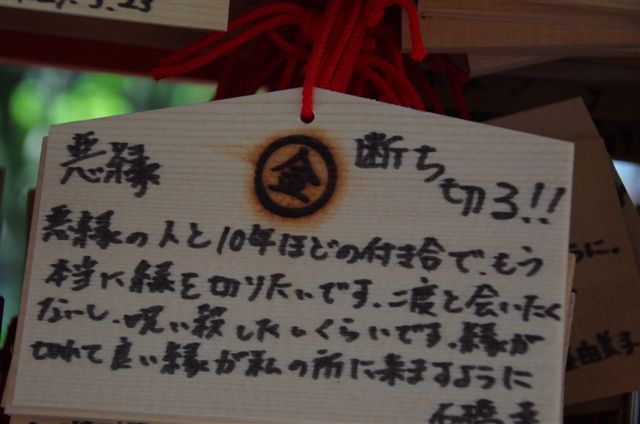 悪縁 金 断ち
切る!!
悪縁の人と10年ほどの付き合で、もう
本当に縁を切りたいです、二度と会いたく
ないし、呪い殺したいくらいです、縁が
切れて良い縁が私の所に来ますように
に。
由美子